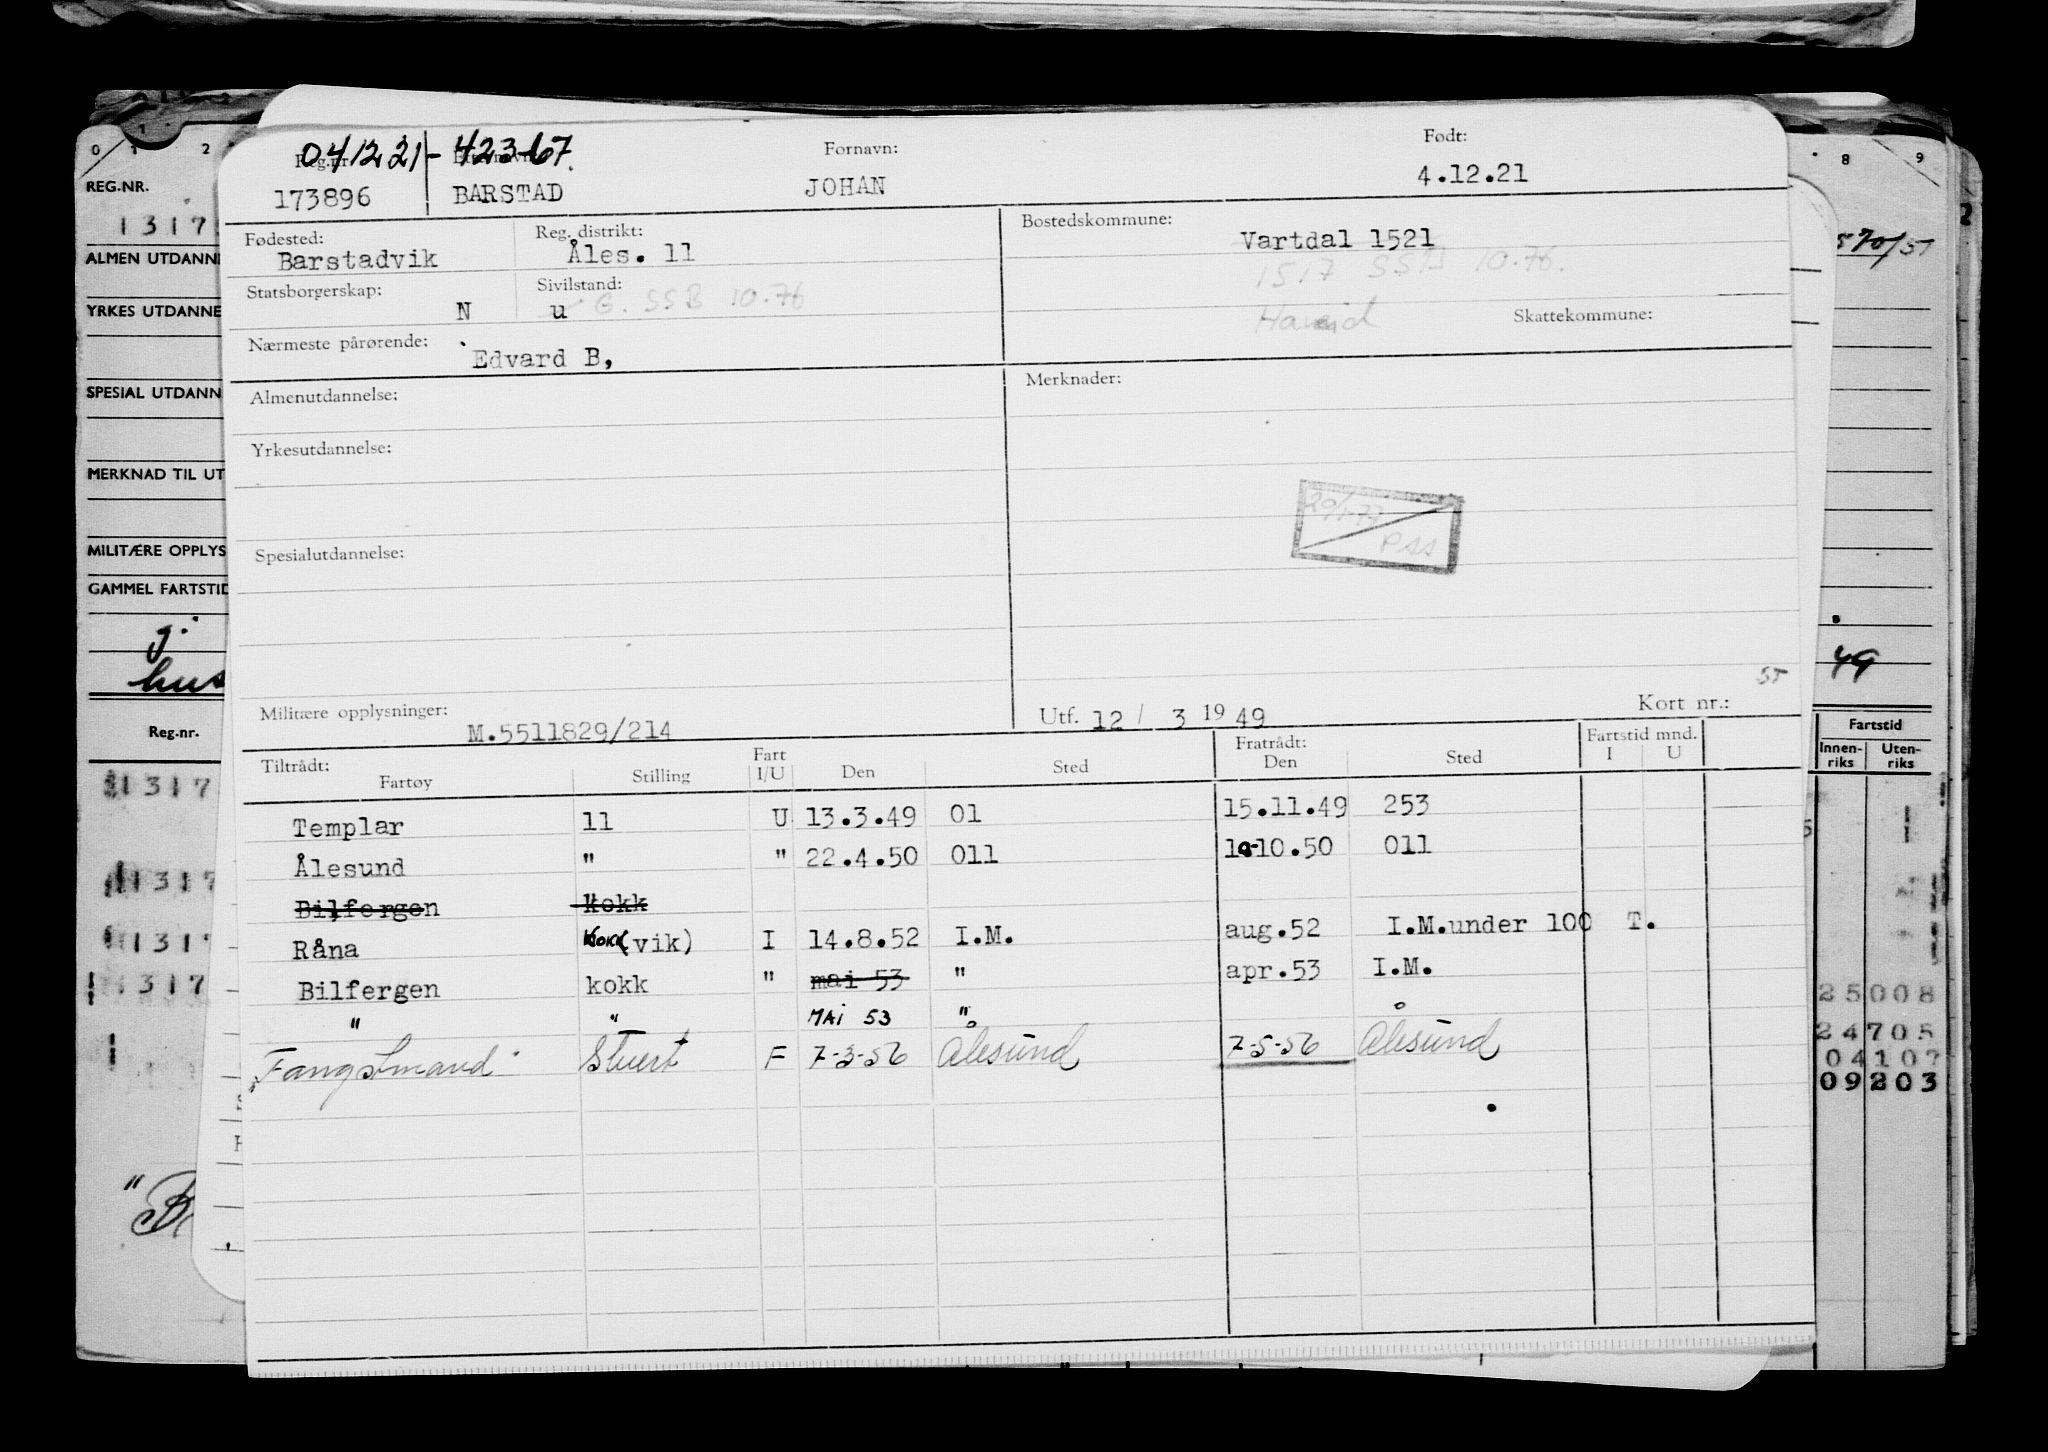 041221-42367.
Reg.nr. Etternavn: Fornavn: Født:
173896 BARSTAD JOHAN 4.12.21
Fødested: Reg. distrikt: Bostedskommune:
Barstadvik Åles. 11 Vartdal 1521
1517 SSB 10.76.
Statsborgerskap: Sivilstand:
N u G. SSB 10.76
Hareid Skattekommune:
Nærmeste pårørende:
Edvard B,
Almenutdannelse: Merknader:
Yrkesutdannelse:
PSS
Spesialutdannelse:
ST
Militære opplysninger: Utf. 12 / 3 19 49 Kort nr.:
M.5511829/214
Tiltrådt: Fratrådt: Fartstid mnd.
Fartøy Stilling Fart I/U Den Sted Den Sted I U
Templar 11 U 13.3.49 01 15.11.49 253
Ålesund " " 22.4.50 011 10-10.50 011
Bilfergen kokk
Råna Kokk(vik) I 14.8.52 I.M. aug.52 I.M.under 100 T.
Bilfergen kokk " mai 53 " apr.53 I.M.
" " MAI 53 "
Fangstmand Stuert F 7-3-56 Ålesund 7-5-56 Ålesund
0 1 2
REG.NR.
1317
ALMEN UTDANNE
YRKES UTDANNE
SPESIAL UTDANN
MERKNAD TIL UT
MILITÆRE OPPLYS
GAMMEL FARTSTID
hus
Reg.nr.
1317
1317
1317
1317
8 9
570/51
49
Fartstid
Innen-riks Uten-riks
25008
24705
04107
09203